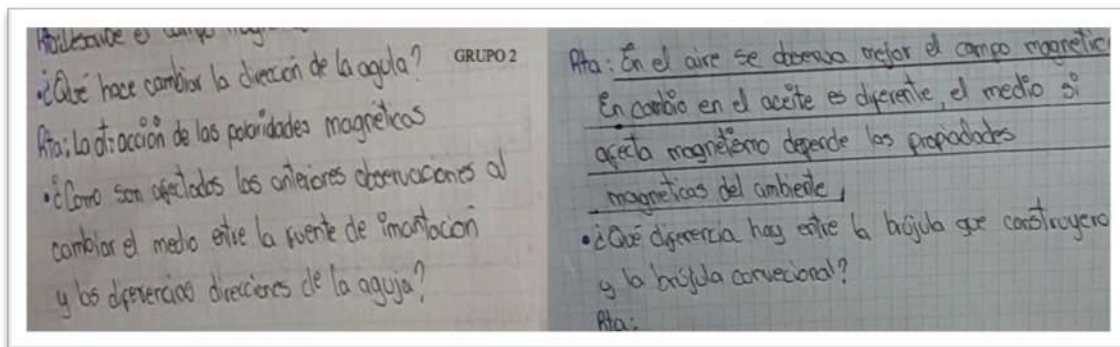 Rta: Describe el campo
• ¿Qué hace cambiar la dirección de la aguja?
Rta: La atracción de las polaridades magnéticas
• ¿Como son afectados las anteriores observaciones al
cambiar el medio entre la fuente de imantación
y las diferencias direcciones de la aguja?
GRUPO 2
Rta: En el aire se observa mejor el campo magnetic
En cambio en el aceite es diferente, el medio si
afecta magnetismo depende las propiedades
magneticas del ambiente,
• ¿Qué diferencia hay entre la brújula que construyero
y la brújula convecional?
Rta: